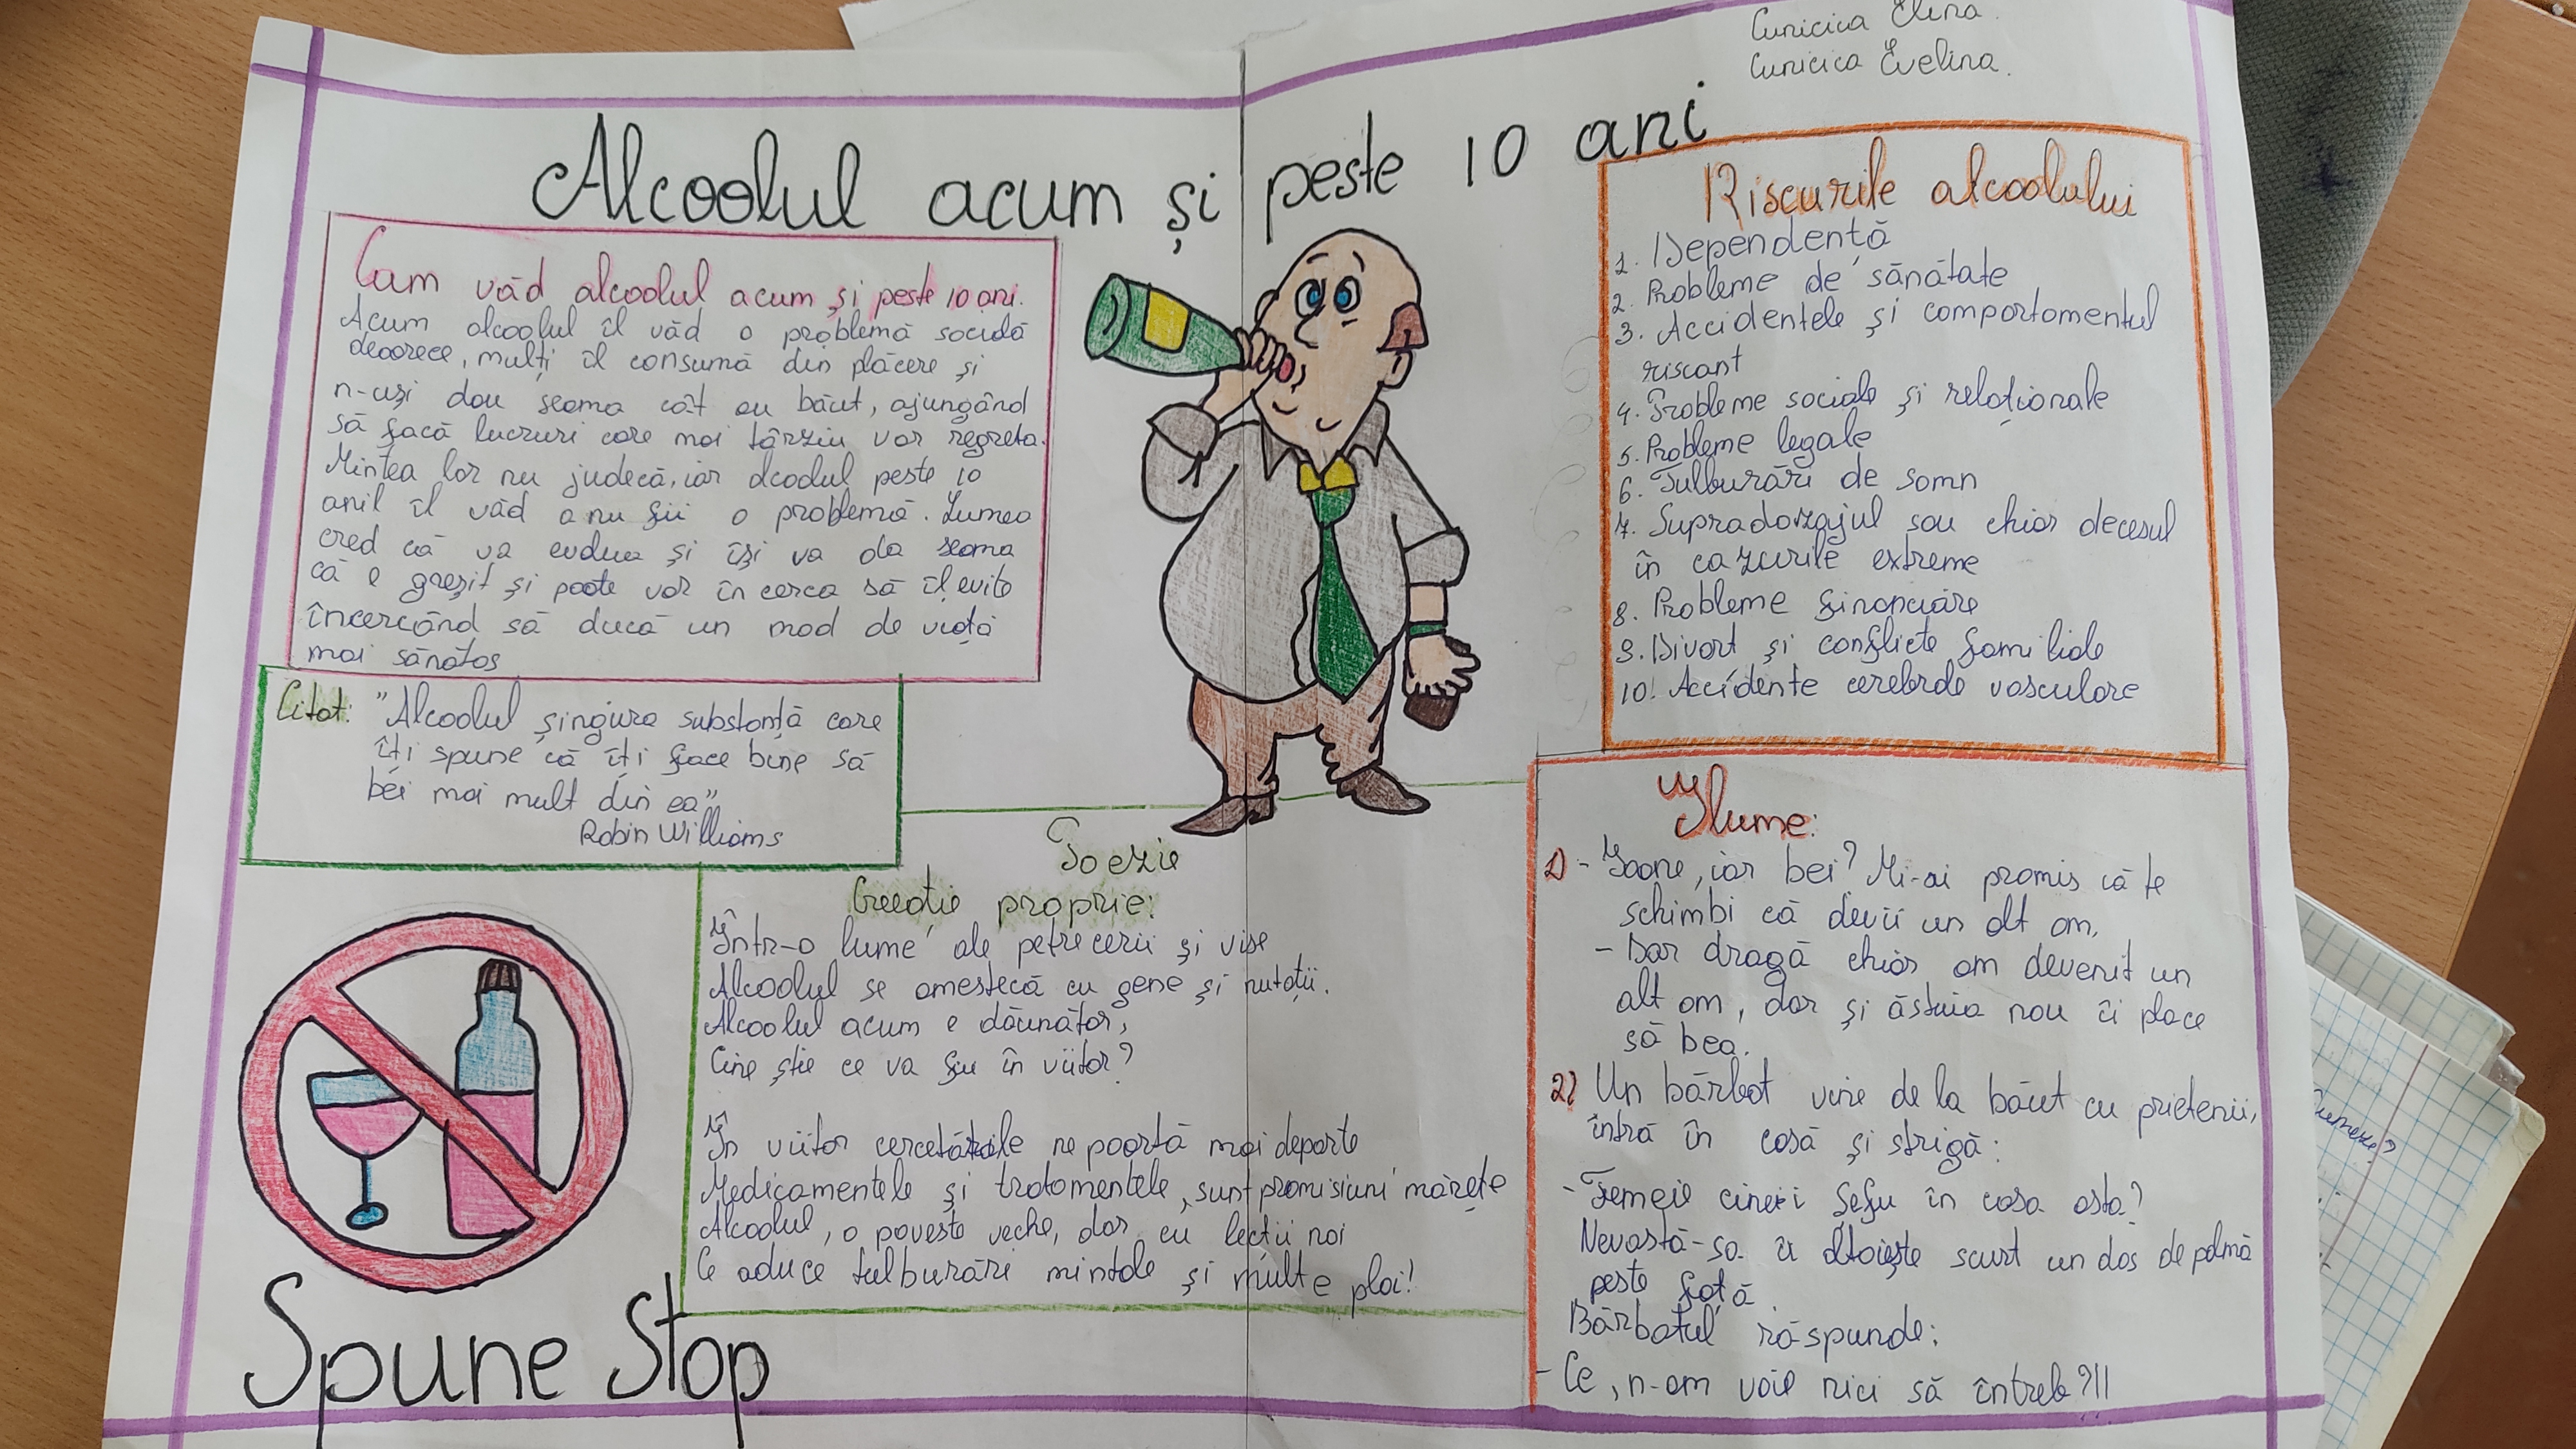 Cunicica Elina.
Cunicica Evelina.
Alcoolul acum și peste 10 ani
Cum văd alcoolul acum și peste 10 ani.
Acum alcoolul îl văd o problemă socială
deoarece, mulți îl consumă din plăcere și
n-uși dau seama cât au băut, ajungând
să facă lucruri care mai târziu vor regreta.
Mintea lor nu judecă, iar alcoolul peste 10
anil îl văd a nu fii o problemă. Lumea
cred că va evolua și își va da seama
că e greșit și poate vor încerca să îl evite
încercând să ducă un mod de viață
mai sănătos
Citat: "Alcoolul șingura substanță care
îți spune că îți face bine să
bei mai mult din ea"
Robin Williams
Poezie
Creație proprie:
Într-o lume ale petrecerii și vise
Alcoolul se amestecă cu gene și
Alcoolul acum e dăunător,
Cine știe ce va fiu în viitor?
În viitor cercetările ne poartă mai departe
Medicamentele și tratamentele, sunt promisiuni mărețe
Alcoolul, o poveste veche, dar cu lecții noi
Ce aduce tulburări mintale și multe ploi!
Spune Stop
Riscurile alcoolului
1. Dependență
2. Probleme de sănătate
3. Accidentele și comportamentul
riscant
4. Probleme sociale și relaționale
5. Probleme legale
6. Tulburări de somn
7. Supradozajul sau chiar decesul
în cazurile extreme
8. Probleme financiare
9. Divort și conflicte familiale
10. Accidente cerebrale vasculare
Glume:
1) - Ioane, iar bei? Mi-ai promis că te
schimbi că devii un alt om.
- Dar dragă chiar am devenit un
alt om, dar și ăstuia nou îi place
să bea.
2) Un bărbat vine de la băut cu prietenii,
intră în casă și strigă:
- Femeie cine-i șefu în casa asta?
Nevastă-sa îi altoiește scurt un dos de palmă
peste față.
Bărbatul răspunde:
- Ce, n-am voie nici să întreb?!!